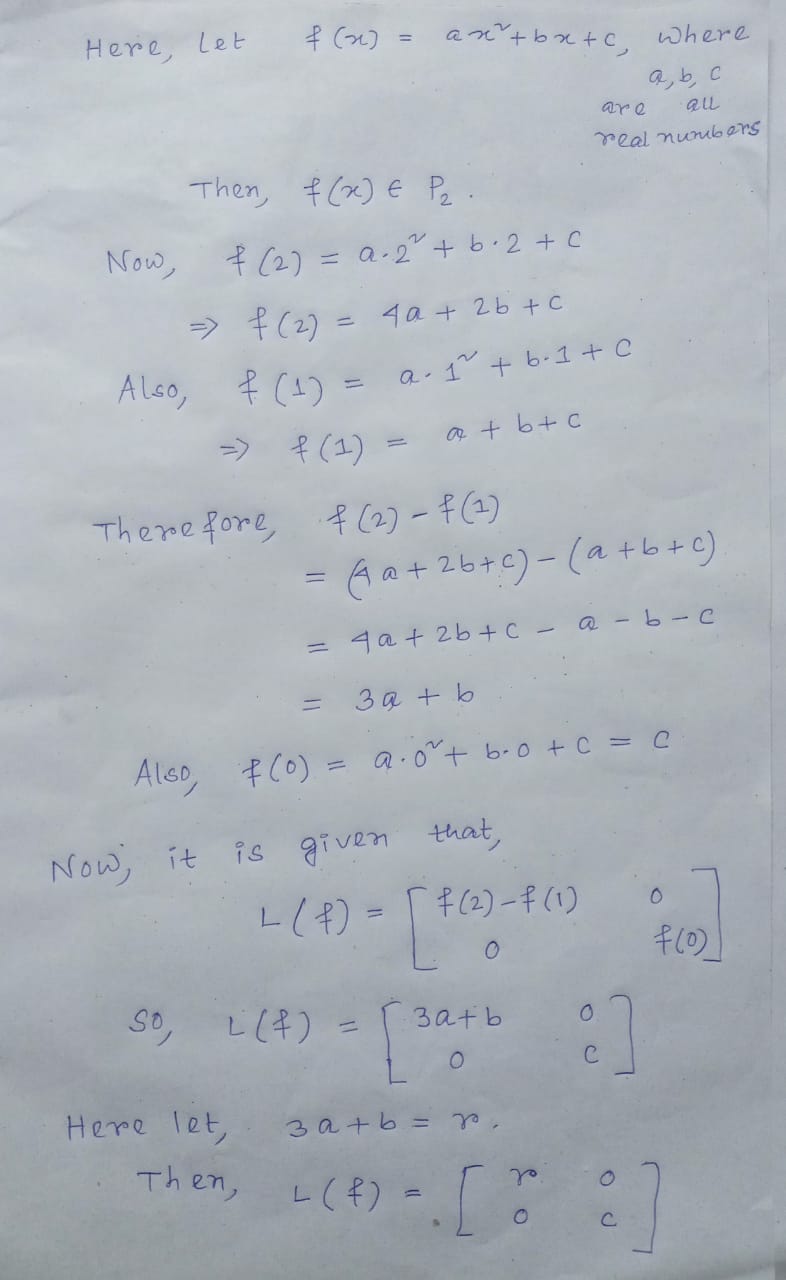 Here, let f(x) = ax²+bx+c, where
a, b, c
are all
real numbers
Then, f(x) ∈ P₂.
Now, f(2) = a·2² + b·2 + c
⇒ f(2) = 4a + 2b + c
Also, f(1) = a·1² + b·1 + c
⇒ f(1) = a + b + c
Therefore, f(2) - f(1)
= (4a + 2b + c) - (a + b + c)
= 4a + 2b + c - a - b - c
= 3a + b
Also, f(0) = a·0² + b·0 + c = c
Now, it is given that,
L(f) = [ f(2)-f(1) 0
0 f(0) ]
So, L(f) = [ 3a+b 0
0 c ]
Here let, 3a + b = r.
Then, L(f) = [ r 0
0 c ]